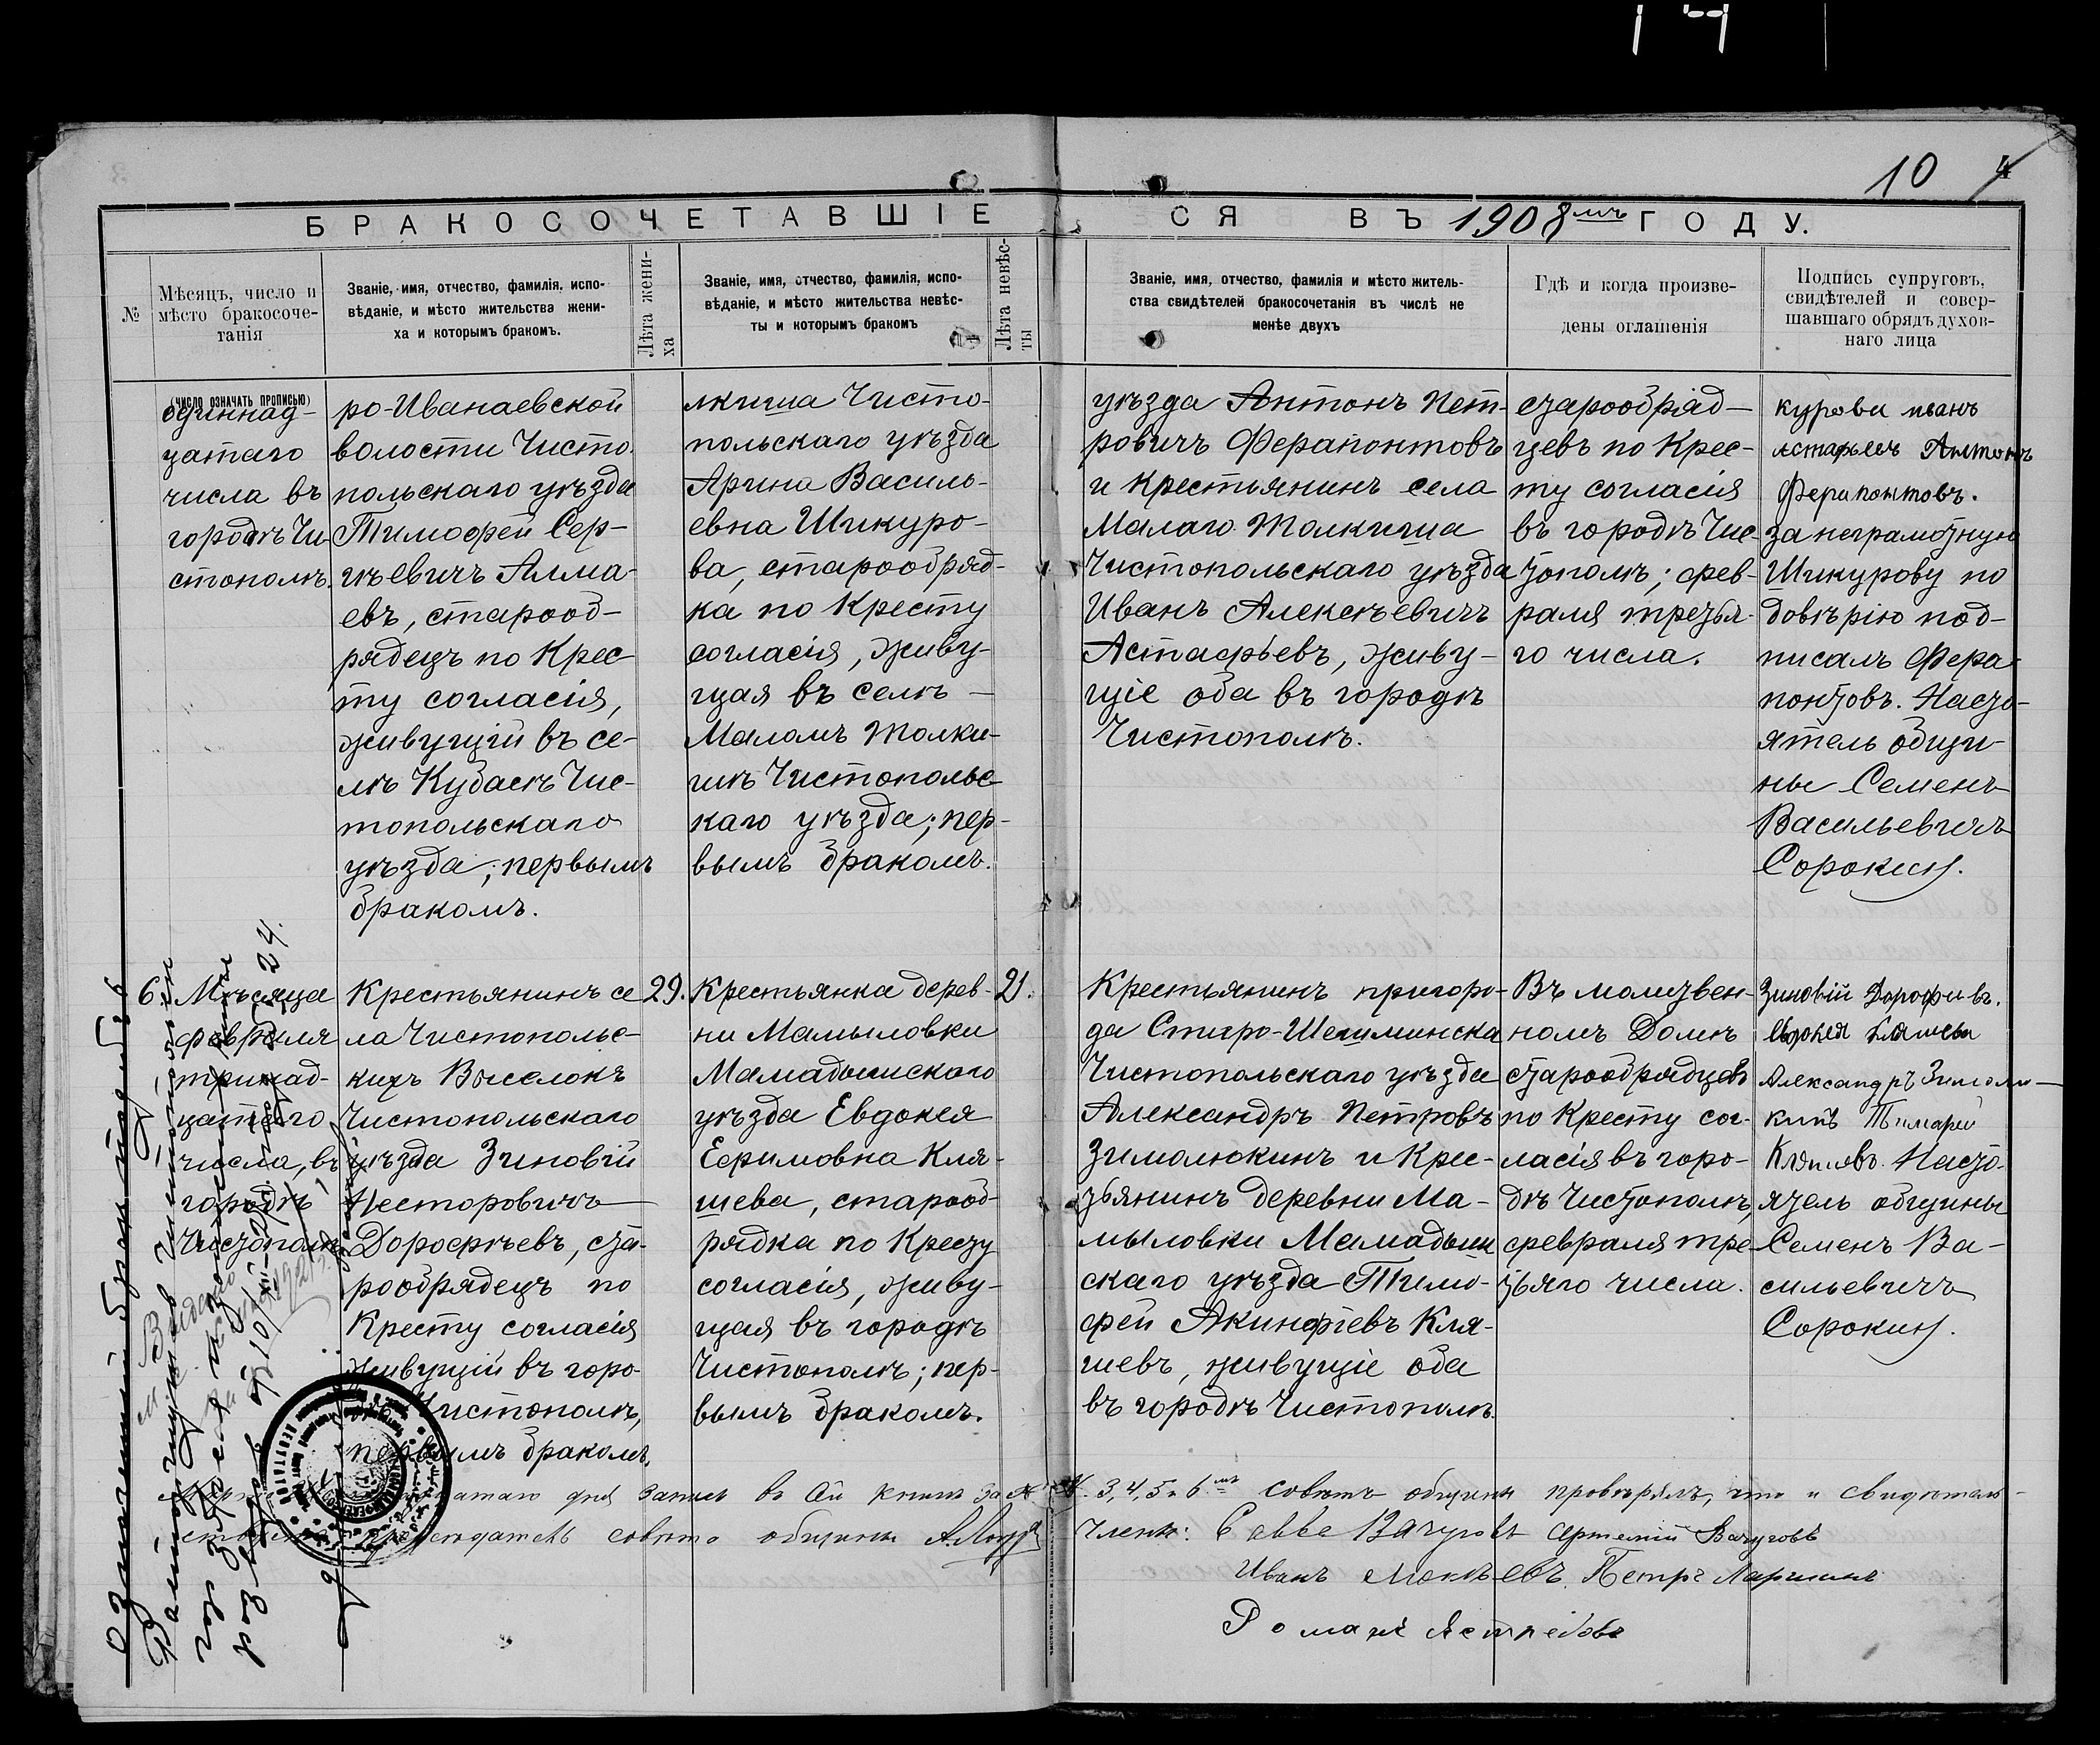 10 4
БРАКОСОЧЕТАВШІЕСЯ ВЪ 1908мъ ГОДУ.
№
Мѣсяцъ, число и
мѣсто бракосоче-
танія
(число означать прописью)
Званіе, имя, отчество, фамилія, испо-
вѣданіе, и мѣсто жительства жени-
ха и которымъ бракомъ.
Лѣта жени-
ха
Званіе, имя, отчество, фамилія, испо-
вѣданіе, и мѣсто жительства невѣс-
ты и которымъ бракомъ
Лѣта невѣс-
ты
Званіе, имя, отчество, фамилія и мѣсто житель-
ства свидѣтелей бракосочетанія въ числѣ не
менѣе двухъ
Гдѣ и когда произве-
дены оглашенія
Подпись супруговъ,
свидѣтелей и совер-
шавшаго обрядъ духов-
наго лица
одиннад-
цатаго
числа въ
городѣ Чи
стополѣ.
ро-Иванаевской
волости Чисто
польскаго уѣзда
Тимофей Сер-
гѣевичъ Алма-
евъ, старооб-
рядецъ по Крес-
ту согласія,
живущій въ се-
лѣ Кубасѣ Чис-
топольскаго
уѣзда; первымъ
бракомъ.
лкиша Чисто-
польскаго уѣзда
Арина Василь-
евна Шикуро-
ва, старообряд-
ка по Кресту
согласія, живу-
щая въ селѣ
Маломъ Толки-
шѣ Чистопольс
каго уѣзда; пер-
вымъ бракомъ.
уѣзда Антонъ Пет-
ровичъ Ферапонтовъ
и Крестьянинъ села
Малаго Толкиша
Чистопольскаго уѣзда
Иванъ Алексѣевичъ
Астафьевъ, живу-
щіе оба въ городѣ
Чистополѣ.
старообряд-
цевъ по Крес-
ту согласія
въ городѣ Чис-
тополѣ; фев-
раля третья-
го числа.
курова иванъ
астафьев Антонъ
Ферапонтовъ.
За неграмотную
Шикурову по
довѣрію под-
писалъ Фера-
понтовъ. Насто-
ятель общи-
ны Семенъ
Васильевичъ
Сорокин.
6.
Мѣсяца
февраля
тринад-
цатаго
числа, въ
городѣ
Чистополѣ
Крестьянинъ се
ла Чистопольс-
кихъ Выселокъ
Чистопольскаго
уѣзда Зиновій
Несторовичъ
Дорофѣевъ, ста-
рообрядецъ по
Кресту согласія
живущій въ горо-
дѣ Чистополѣ,
первымъ бракомъ.
29.
Крестьянка дерев-
ни Мамыловки
Мамадышскаго
уѣзда Евдокея
Ефимовна Кля-
шева, старооб-
рядка по Кресту
согласія, живу-
щая въ городѣ
Чистополѣ; пер-
вымъ бракомъ.
21.
Крестьянинъ пригоро-
да Старо-Шешминска
Чистопольскаго уѣзда
Александръ Петровъ
Зимолюкинъ и Крес-
тьянинъ деревни Ма-
мыловки Мамадыш
скаго уѣзда Тимо-
фей Акинфіевъ Кля-
шевъ, живущіе оба
въ городѣ Чистополѣ.
Въ молитвен-
номъ Домѣ
старообрядцевъ
по Кресту сог-
ласія въ горо-
дѣ Чистополѣ,
февраля тре
тьяго числа.
Зиновій Дорофеевъ.
Евдокея Кляшева
Александръ Зимолю-
кинъ Тимофей
Кляшевъ. Насто-
ятель общины
Семенъ Ва-
сильевичъ
Сорокин.
дня запись въ сей книгѣ за №
№. 3, 4, 5 и 6мъ совѣтъ общины провѣрялъ, что и свидѣтель-
ствуетъ. Председатель совѣта общины
Члены: Савва Вачуговъ Артемій Вачуговъ
Иванъ Мокѣевъ. Петръ Ларшинъ
Романъ Ястребовъ